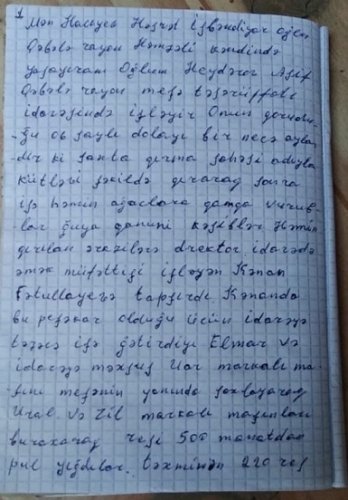 1
Mən Həsrət İsbəndiyar oğlu
Qəbələ rayon Həmzəli kəndində
yaşayıram Oğlum Heydərov Asif
Qəbələ rayon meşə təsərüffatı
idarəsində işləyir Onun
-ğu ob sayılı dolayı bir neçə ayla
-dır ki sanka qırma sahəsi adıyla
kütləvi şəkildə qıraraq sonra
isə həmin ağaclara damğa vurub-
lar guya qanuni kəsiblər Həmin
qırılan direktor idarədə
əmək müfəttişi işləyən Kənan
Fətullayevə tapşırdı Kənanda
bu peşəkar olduğu üçün idarəyə
təzəcə işə gətirdiyi Elmar və
idarəyə məxsus Uaz markalı ma-
-şını meşənin yanında saxlayaraq
Ural və Zil markalı maşınları
buraxaraq reysi 500 manatdan
pul yığdılar. təxminən 220 reys